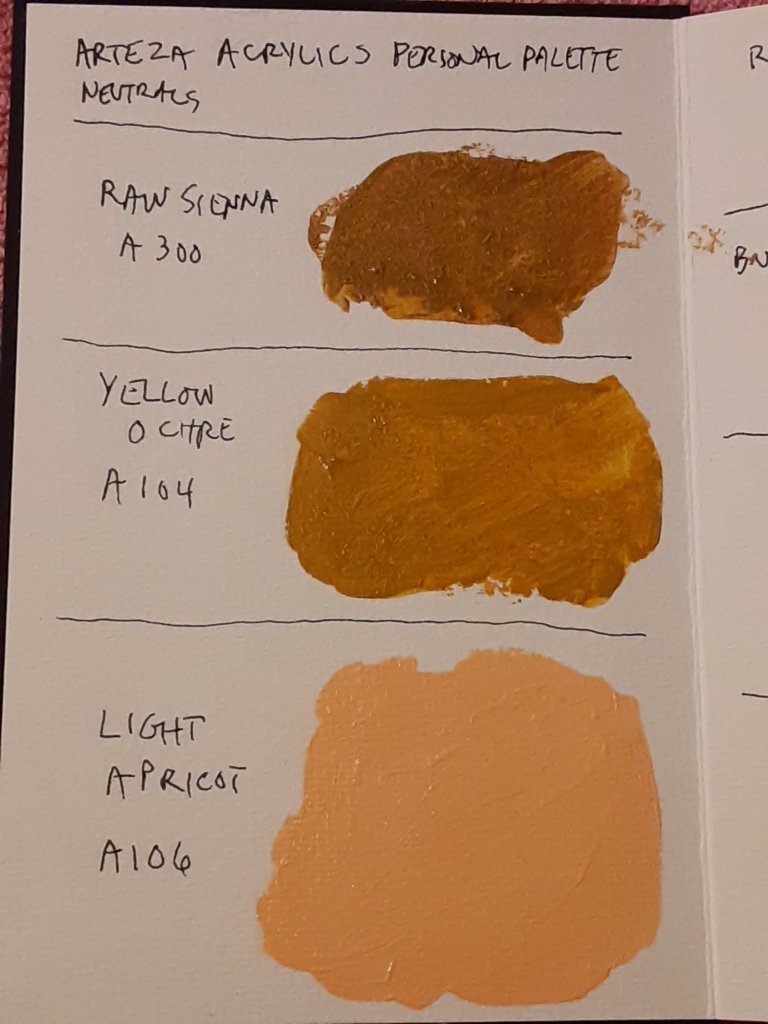 ARTEZA ACRYLICS PERSONAL PALETTE
NEUTRALS
RAW SIENNA
A 300
YELLOW
OCHRE
A 104
LIGHT
APRICOT
A106